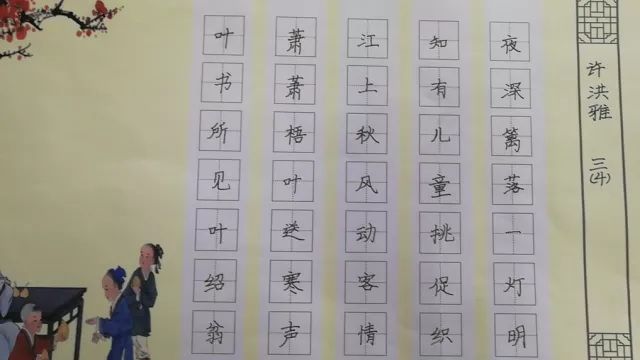 叶书所见叶绍翁
萧萧梧叶送寒声
江上秋风动客情
知有儿童挑促织
夜深篱落一灯明
许洪雅 三(4)